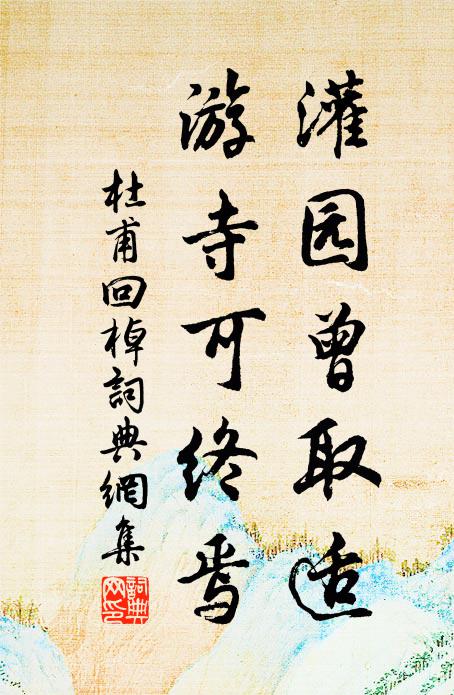 灌园曾取适
游寺可终焉
杜甫回棹詞典網集
詞典